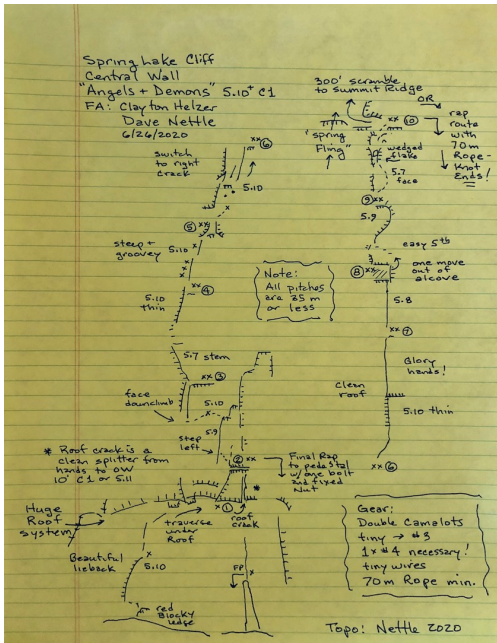 Spring Lake Cliff
Central Wall
"Angels + Demons" 5.10+ C1
FA: Clayton Helzer
Dave Nettle
6/26/2020
300' scramble
to Summit Ridge
OR
rap
route
with
70m
Rope-
Knot
Ends!
xx 10
"Spring
Fling"
wedged
flake
5.7
face
9 xx
5.9
easy 5th
one move
out of
alcove
8 xx
5.8
xx 7
Glory
hands!
clean
roof
5.10 thin
xx 6
xx 6
switch
to right
crack
5.10
x
5 xx
steep +
groovey
5.10
x
x
x
xx 4
5.10
thin
Note:
All pitches
are 35 m
or less
5.7 stem
xx 3
face
downclimb
5.10
5.9
step
left
2 xx
* Roof crack is a
clean splitter from
hands to OW
10' C1 or 5.11
Final Rap
to pedestal
w/ one bolt
and fixed
Nut
*
x 1
Huge
Roof
system
traverse
under
Roof
roof
crack
Beautiful
lieback
x
5.10
FP
x
red
Blocky
ledge
Gear:
Double Camalots
tiny → #3
1x #4 necessary!
tiny wires
70m Rope min.
Topo: Nettle 2020